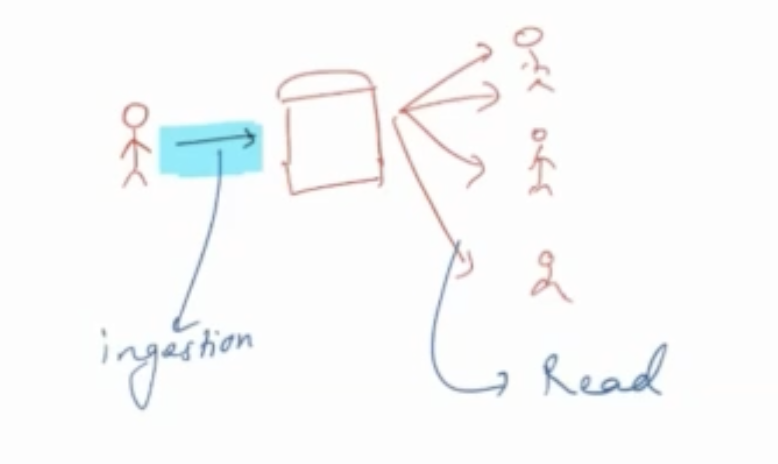 ingestion
Read